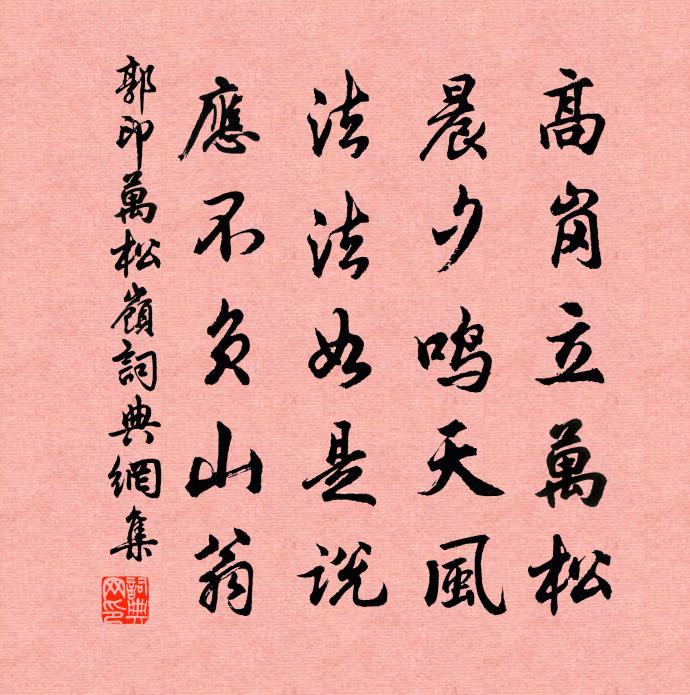 高岗立萬松
晨夕鸣天風
法法如是説
應不负山翁
郭印萬松嶺詞典網集